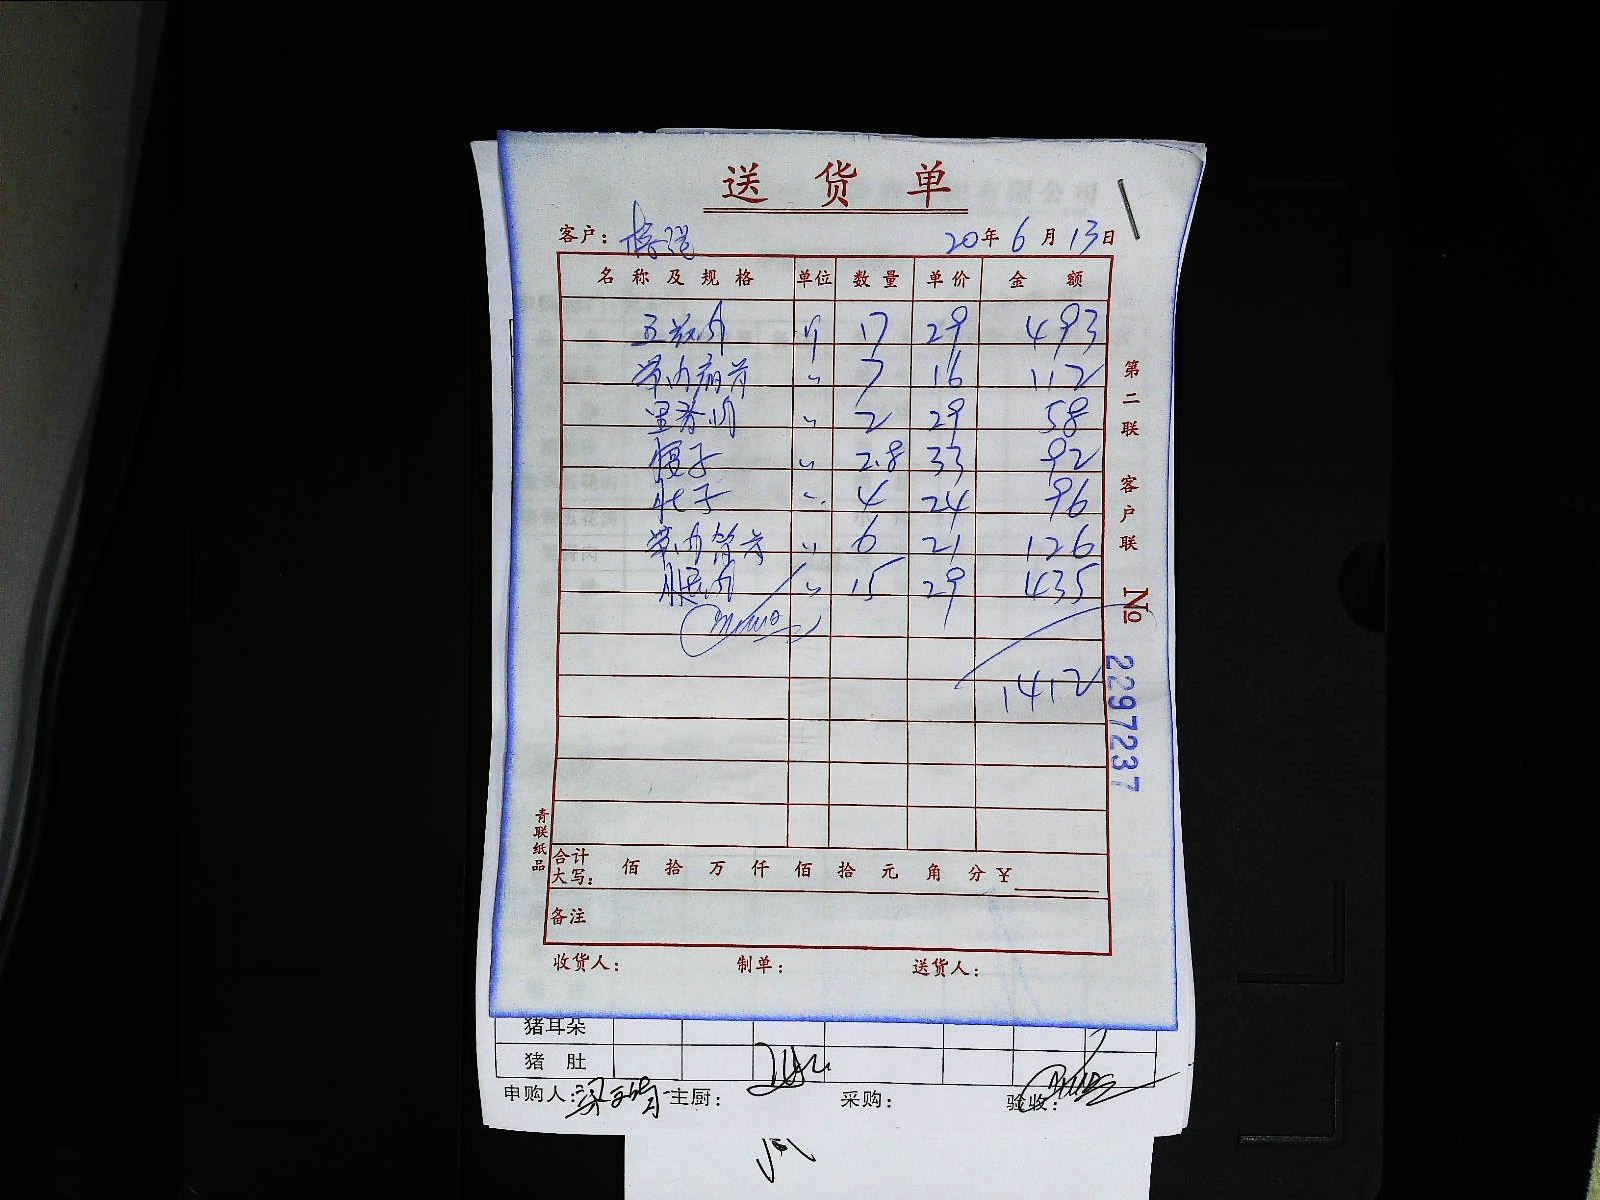 送货单
客户：
20年6月13日
名称及规格 单位 数量 单价 金额
五花肉 斤 17 29 493
带肉扇骨 〃 7 16 112
里脊肉 〃 2 29 58
腰子 〃 2.8 33 92
肚子 〃 4 24 96
带肉筒骨 〃 6 21 126
腿肉 〃 15 29 435
1412
合计大写： 佰 拾 万 仟 佰 拾 元 角 分 ¥
备注
收货人： 制单： 送货人：
第二联 客户联
No 2297237
青联纸品
猪耳朵
猪肚
申购人： 主厨： 采购： 验收：